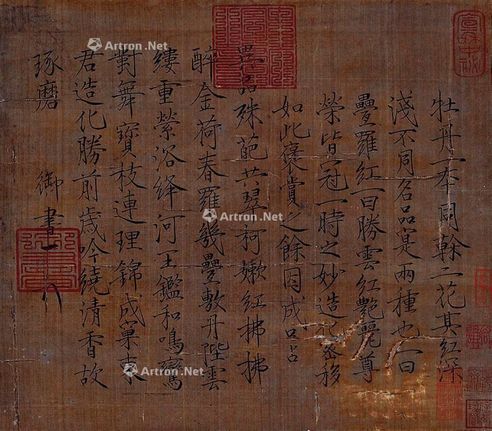 牡丹一本同幹二花其紅深
淺不同名品實兩種也一曰
疊羅紅一曰勝雲紅艷麗尊
榮皆冠一時之妙造化密移
如此褒賞之餘因成口占
異品殊葩共翠柯嫩紅拂拂
醉金荷春羅幾疊敷丹陛雲
縷重縈浴絳河玉鑑和鳴鸞
對舞寶枝連理錦成窠東
君造化勝前歲吟繞清香故
琢磨 御書
Artron.Net
Artron.Net
Artron.Net
Artron.Net
Artron.Net